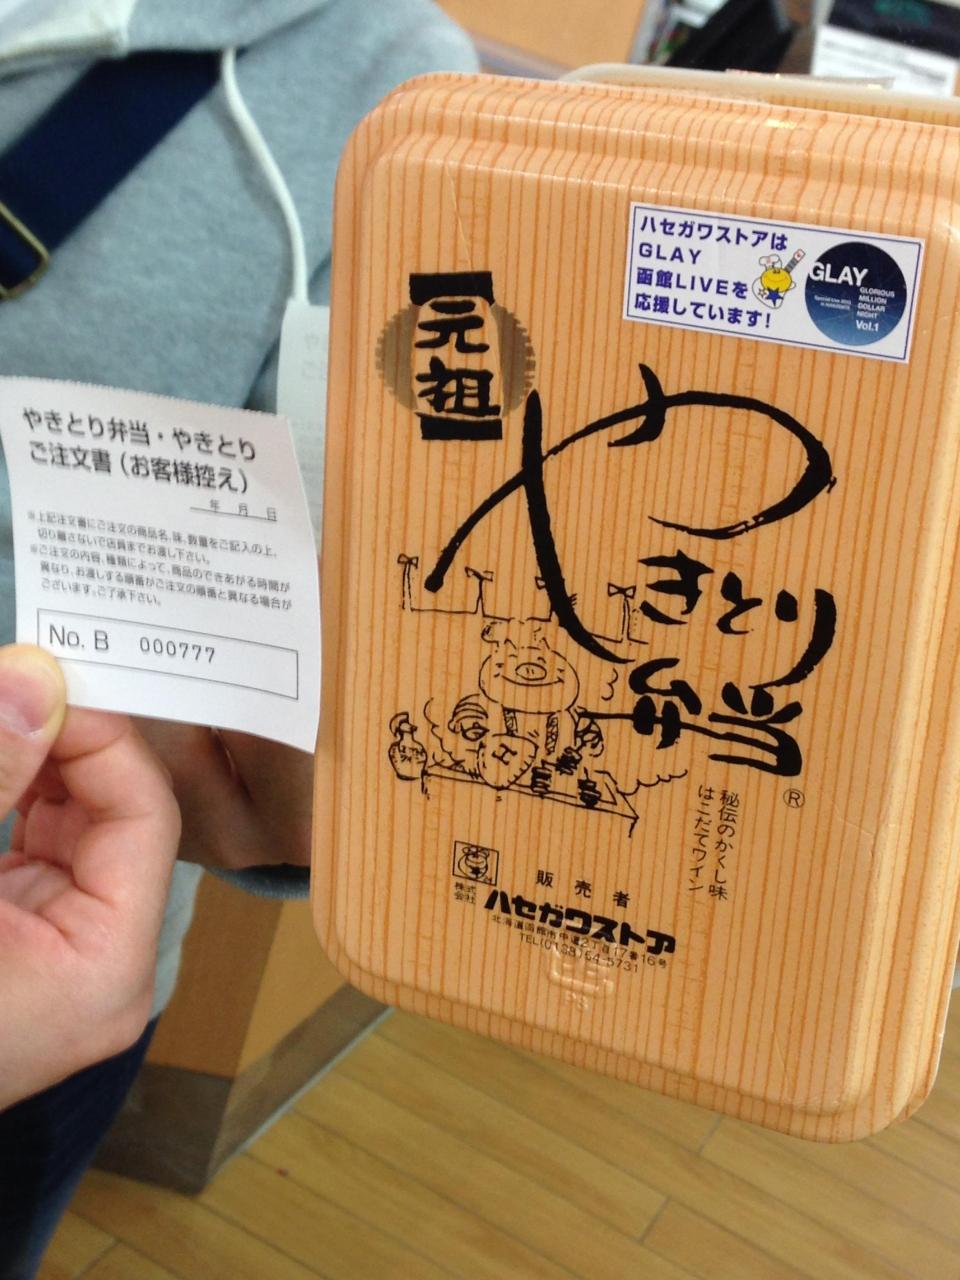 やきとり弁当・やきとり
ご注文書(お客様控え)
年 月 日
※上記注文書にご注文の商品名、味、数量をご記入の上、
切り離さないで店員までお渡し下さい。
※ご注文の内容、種類によって、商品のできあがる時間が
異なり、お渡しする順番がご注文の順番と異なる場合が
ございます。ご了承下さい。
No. B 000777
ハセガワストアは
GLAY
函館LIVEを
応援しています!
GLAY
GLORIOUS
MILLION
DOLLAR
NIGHT
Vol.1
元祖
やきとり
弁当
®
秘伝のかくし味
はこだてワイン
販売者
株式会社 ハセガワストア
北海道函館市中道2丁目17番16号
TEL(0138)54-5731